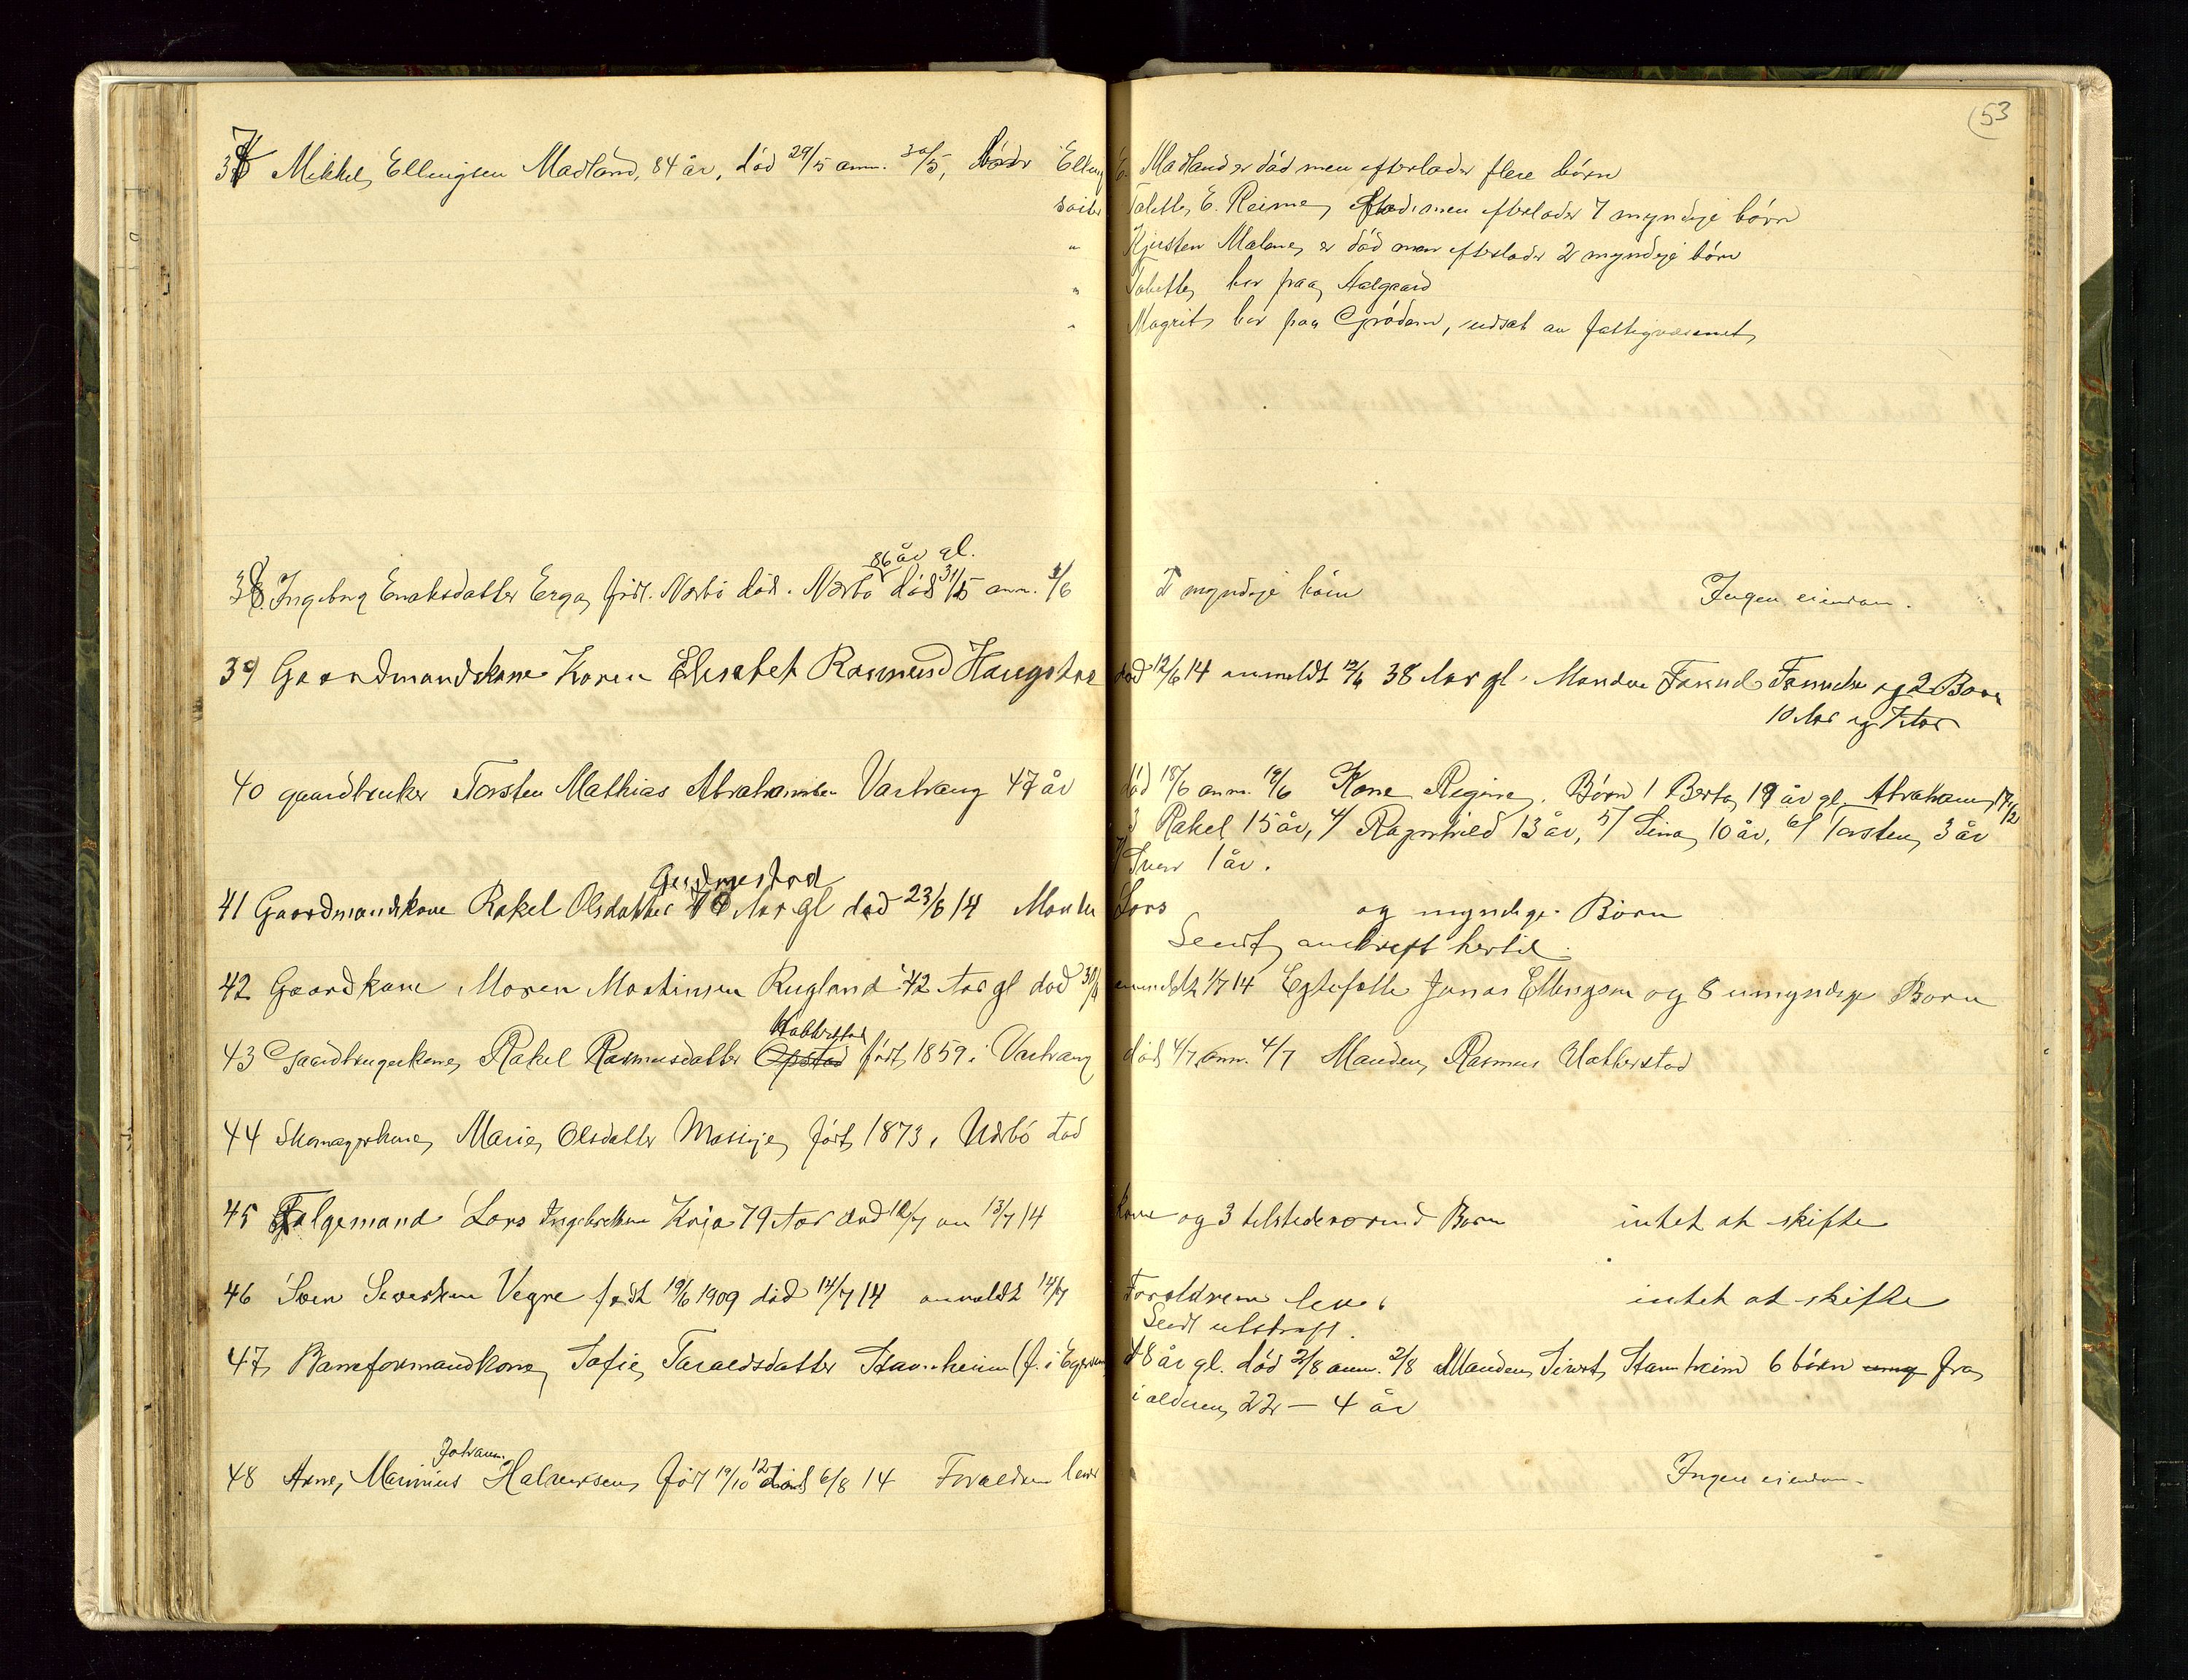 53
37 Mikkel Ellingsen Madland, 84 år, död 29/5 anm. 30/5, Elling E. Madland er död men efterlader flere börn
Tolette E. Reime, efterlader 7 myndige börn
" Kjersten er död men efterlader 2 myndige börn
" Tobette, bor paa Aalgaard
" Magrit, bor paa Grödem, udsat av fattigvæsenet
86 år gl.
38 Ingeborg Enoksdatter Erga, föd i Nærbö död i Nærbö död 31/5 anm. 1/6 myndige börn Ingen eiendom.
39 Gaardmandskone Karen Elisabet Rasmusd Haugstad död 12/6 14 anmeldt 12/6 38 Aar gl. Manden og 2 Born
10 Aar og 7 Aar
40 gaardbruker Torsten Mathias Abrahamsen Varhaug 47 år död 18/6 anm. 19/6 Kone Regine, Börn 1 Berta 19 år gl. Abraham 17 1/2
3 Rakel 15 år, 4/ Ragnhild 13 år, 5/ Sina 10 år, 6/ Torsten, 3 år
7/ 1 år.
41 Gaardmandskone Rakel Olsdatter Aar gl död 23/6 14 Manden Lars og myndige Börn
Sendt hertil
42 Gaardkone Maren Martinsen Rugland 42 Aar gl död 30/6 anmeldt 1/7 14 Egtefelle Jonas Ellingsen og 8 umyndige Born
Habberstad
43 Gaardbrugerkone, Rakel Rasmusdatter Opstad födt 1859 i Varhaug död 4/7 anm. 4/7 Manden, Rasmus Habberstad
44 Skomagerkone, Marie Olsdatter Motinje, födt 1873 i Nærbö död
45 Folgemand Lars Ingebretsen Kvia 79 Aar död 12/7 an 13/7 14 kone og 3 tilstedeværend Born intet at skifte
46 Sven Severksen Vegre födt 19/6 1909 död 14/7 14 anmeldt 14/7 Foreldrene lever intet at skifte
Sendt utskrift.
47 Baneformandkone, Sofie, Taraldsdatter Stamnheim (f. i Egersund 48 år gl. död 2/8 anm. 2/8 Manden, Sivert, Stamnheim 6 börn umg fra,
i alderen, 22 — 4 år
Johann
48 Arne, Marinius Halvorsen, föd 19/10 12 död 6/8 14 Forældren lever Ingen eiendom.